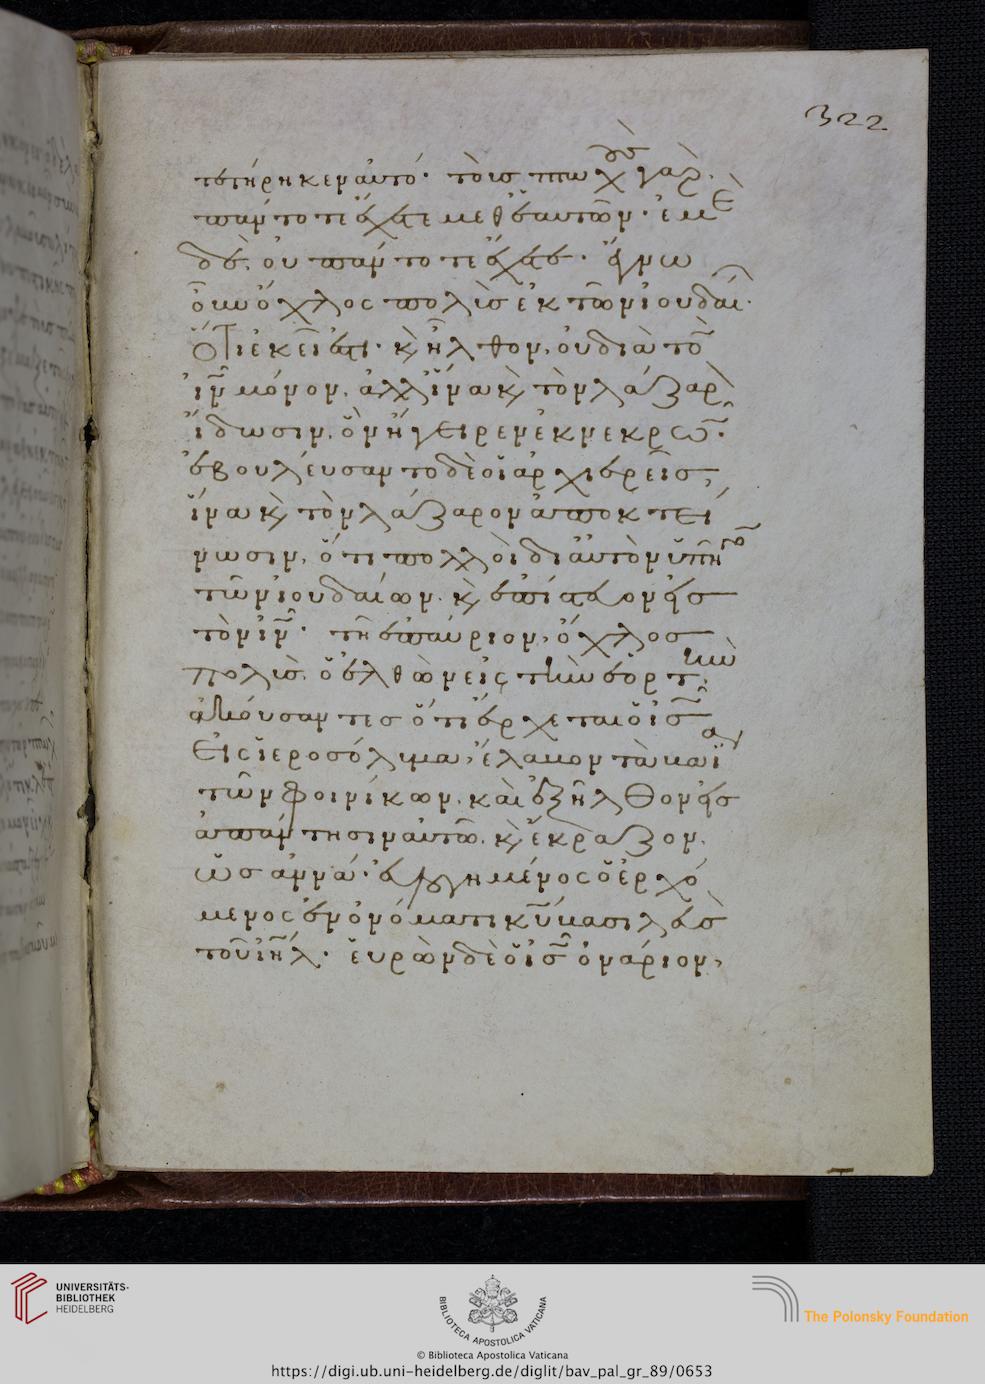 322
τετήρηκεν αὐτό· τοὺς πτωχοὺς γὰρ
πάντοτε ἔχετε μεθ' ἑαυτῶν· ἐμὲ
δὲ, οὐ πάντοτε ἔχετε· ἔγνω
οὖν ὄχλος πολὺς ἐκ τῶν ἰουδαί·
ὅτι ἐκεῖ ἐστι· κ, ἦλθον, οὐ διὰ τὸ
ἰν μόνον, ἀλλ' ἵνα κ, τὸν λάζαρ
ἴδωσιν, ὃν ἤγειρεν ἐκ νεκρῶ·
ἐβουλεύσαντο δὲ οἱ ἀρχιερεῖς,
ἵνα κ, τὸν λάζαρον ἀποκτεί
νωσιν, ὅτι πολλοὶ δι' αὐτὸν ὑπῆγο
τῶν ἰουδαίων· κ, ἐπίστευον εἰς
τὸν ἰν· τῇ ἐπαύριον, ὄχλος
πολὺς ὁ ἐλθὼν εἰς τὴν ἑορτὴν·
ἀκούσαντες ὅτι ἔρχεται ὁ ις
εἰς ἱεροσόλυμα, ἔλαβον τὰ βαΐα
τῶν φοινίκων· καὶ ἐξῆλθον εἰς
ἀπάντησιν αὐτῶ· κ, ἔκραζον,
ὡσαννά· εὐλογημένος ὁ ἐρχό
μενος ἐν ὀνόματι κυ βασιλεὺς
τοῦ ιηλ· εὑρὼν δὲ ὁ ις ὀνάριον,
UNIVERSITÄTS-
BIBLIOTHEK
HEIDELBERG
BIBLIOTECA APOSTOLICA VATICANA
The Polonsky Foundation
© Biblioteca Apostolica Vaticana
https://digi.ub.uni-heidelberg.de/diglit/bav_pal_gr_89/0653